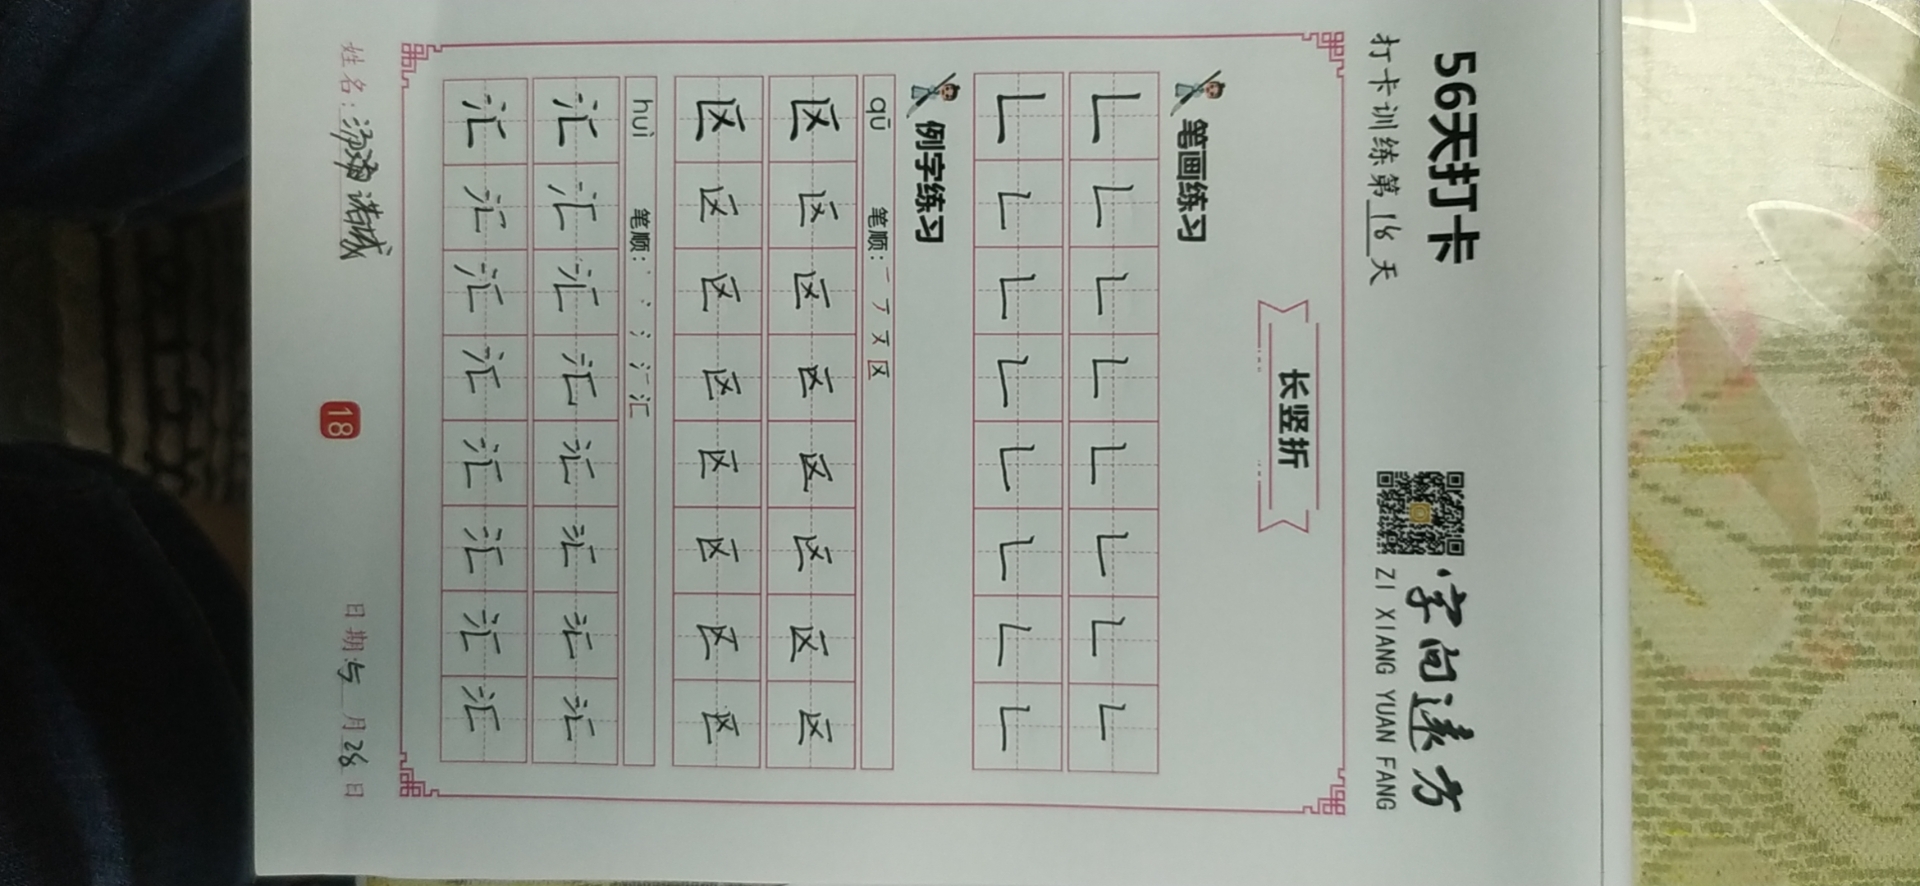 56天打卡
打卡训练第18天
字向远方
ZI XIANG YUAN FANG
长竖折
笔画练习
𠃊 𠃊 𠃊 𠃊 𠃊 𠃊 𠃊 𠃊
𠃊 𠃊 𠃊 𠃊 𠃊 𠃊 𠃊 𠃊
例字练习
qū 笔顺: 一 丆 㐅 区
区 区 区 区 区 区 区 区
区 区 区 区 区 区 区 区
huì 笔顺: 丶 冫 氵 汇
汇 汇 汇 汇 汇 汇 汇 汇
汇 汇 汇 汇 汇 汇 汇 汇
姓名:
18
日期:5月28日